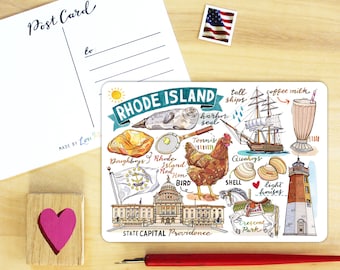 Post Card
to
MADE BY
RHODE ISLAND
harbor
seal
tall
ships
coffee milk
Tennis
Doughboys
Rhode
Island
Red
Hen
BIRD
Quahogs
SHELL
light
houses
STATE CAPITAL Providence
Crescent
Park